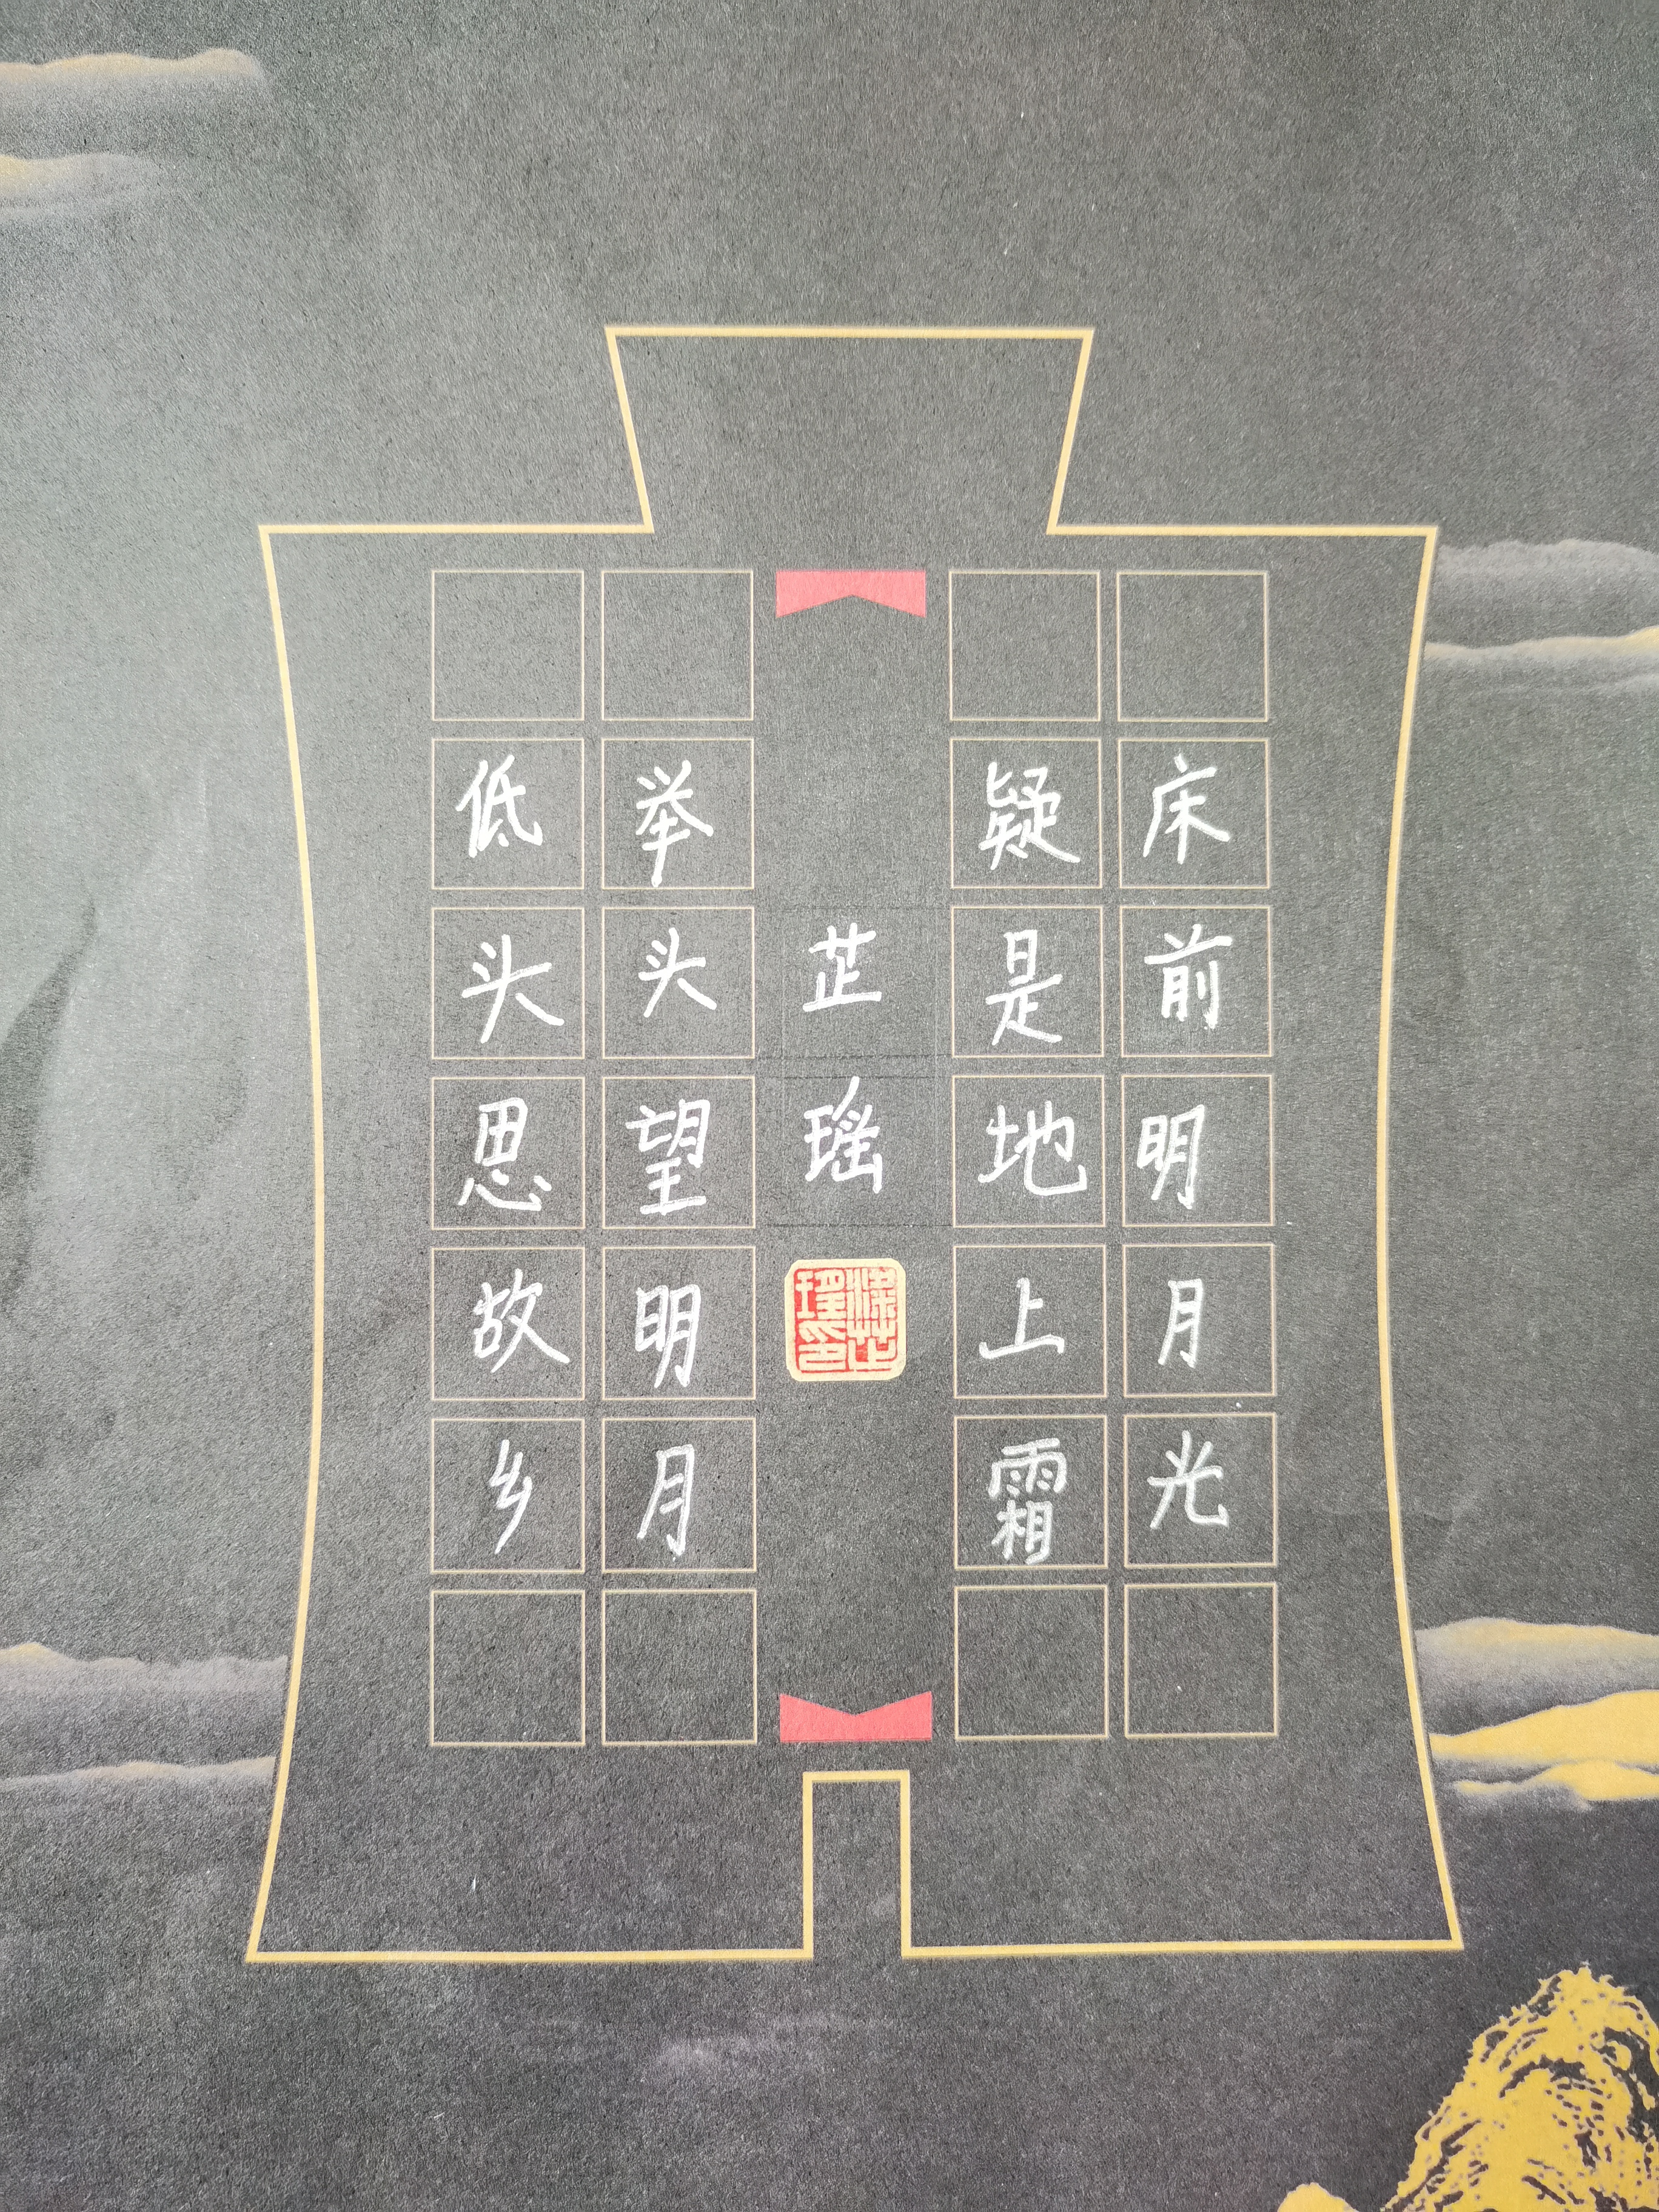 床前明月光
疑是地上霜
芷瑶
举头望明月
低头思故乡